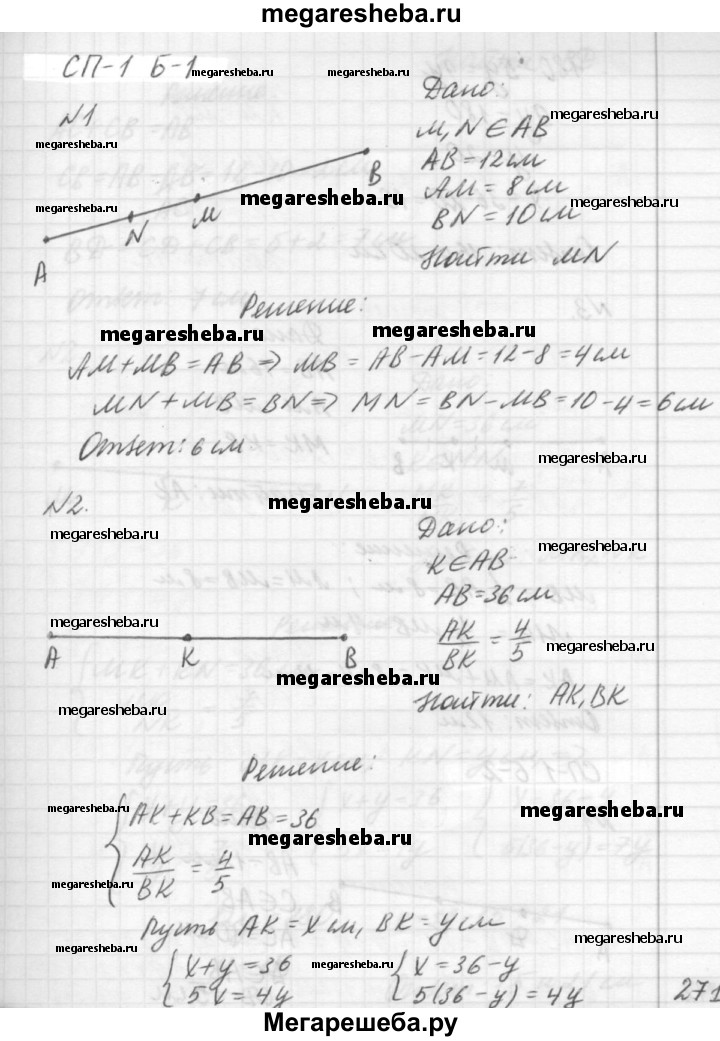 megaresheba.ru
СП-1 Б-1
megaresheba.ru
megaresheba.ru
Дано:
N1
megaresheba.ru
M, N ∈ AB
megaresheba.ru
AB = 12 см
B
megaresheba.ru
AM = 8 см
megaresheba.ru
M
BN = 10 см
N
A
Найти MN
Решение:
megaresheba.ru
megaresheba.ru
AM + MB = AB ⇒ MB = AB - AM = 12 - 8 = 4 см
MN + MB = BN ⇒ MN = BN - MB = 10 - 4 = 6 см
Ответ: 6 см
megaresheba.ru
N2.
megaresheba.ru
megaresheba.ru
Дано:
megaresheba.ru
K ∈ AB
AB = 36 см
megaresheba.ru
AK/BK = 4/5
megaresheba.ru
A K B
megaresheba.ru
Найти: AK, BK
megaresheba.ru
Решение:
megaresheba.ru
AK + KB = AB = 36
megaresheba.ru
megaresheba.ru
AK/BK = 4/5
megaresheba.ru
Пусть AK = x см, BK = y см
megaresheba.ru
megaresheba.ru
x + y = 36
megaresheba.ru
x = 36 - y
5x = 4y
5(36 - y) = 4y
271
Мегарешеба.ру